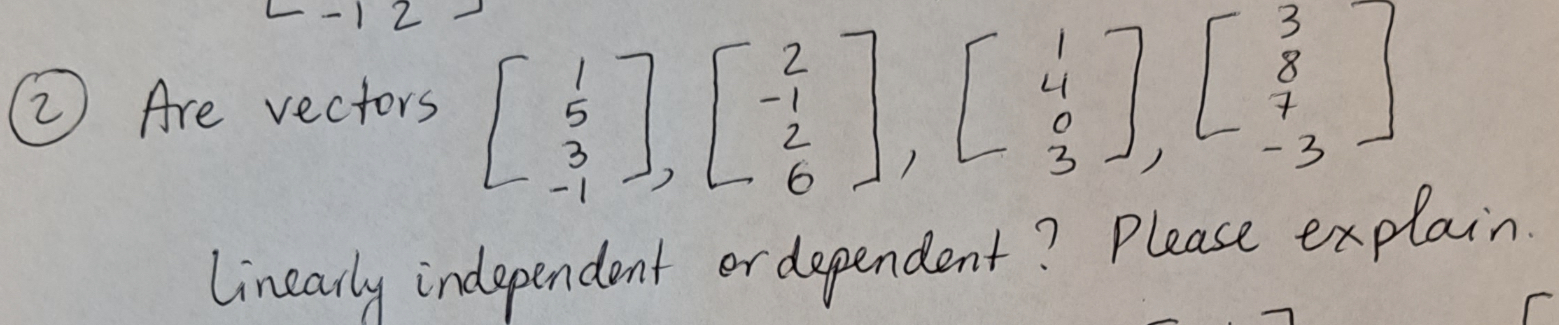 [ -1 2 ]
② Are vectors [ 1 5 3 -1 ], [ 2 -1 2 6 ], [ 1 4 0 3 ], [ 3 8 7 -3 ]
linearly independent or dependent? Please explain.